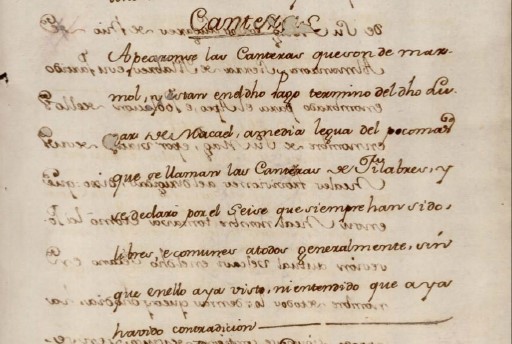 Canteras
Apearonse las Canteras que son de mar-
mol, y estan en el dho pago termino del dho Lu-
gar de Macael, a media legua del poco mas
que se llaman las Canteras de Filabres, y
se declaró por el Geise que siempre han sido,
libres, e comunes a todos generalmente, sin
que en ello aya visto, ni entendido que aya
havido contradicion